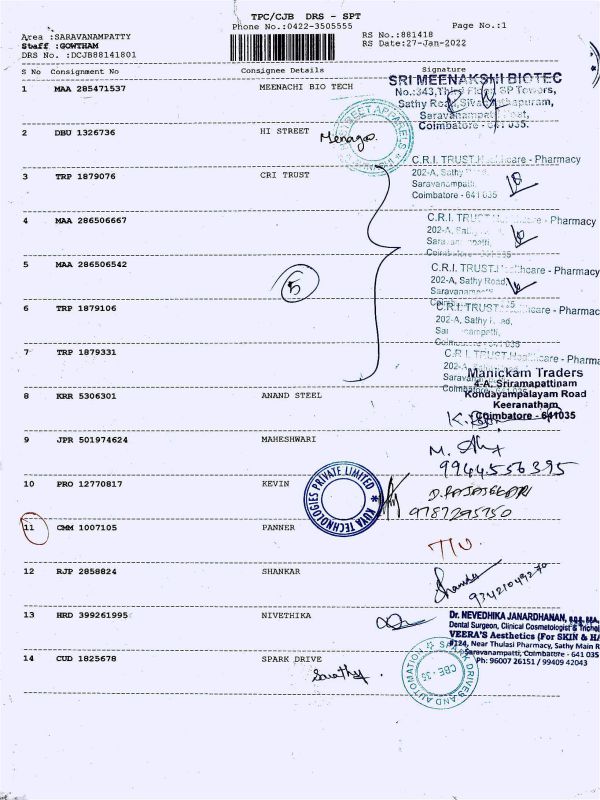 TPC/CJB DRS - SPT
Phone No.:0422-3505555
Page No.:1
Area :SARAVANAMPATTY
Staff :GOWTHAM
DRS No. :DCJB88141801
RS No.:881418
RS Date:27-Jan-2022
S No Consignment No Consignee Details Signature
1 MAA 285471537 MEENACHI BIO TECH
SRI MEENAKSHI BIOTEC
No.:343,Third Floor, SP Towers,
Sathy Road, Sivananthapuram,
Saravanampatti Post,
Coimbatore - 641 035.
2 DBU 1326736 HI STREET
STREET APPARELS
3 TRP 1879076 CRI TRUST
C.R.I. TRUST Healthcare - Pharmacy
202-A, Sathy Road,
Saravanampatti,
Coimbatore - 641 035
4 MAA 286506667
C.R.I. TRUST Healthcare - Pharmacy
202-A, Sathy Road,
Saravanampatti,
Coimbatore - 641 035
5 MAA 286506542
5
C.R.I. TRUST Healthcare - Pharmacy
202-A, Sathy Road,
Saravanampatti,
6 TRP 1879106
C.R.I. TRUST Healthcare - Pharmacy
202-A, Sathy Road,
Saravanampatti,
7 TRP 1879331
C.R.I. TRUST Healthcare - Pharma
202-A,
Saravanampatti
8 KRR 5306301 ANAND STEEL
Manickam Traders
4-A, Sriramapattinam
Kondayampalayam Road
Keeranatham
Coimbatore - 641035
9 JPR 501974624 MAHESHWARI
9944556395
10 PRO 12770817 KEVIN
KUYA TECHNOLOGIES PRIVATE LIMITED
D.RAJASEKARI
9787295750
11 CMM 1007105 PANNER
12 RJP 2858824 SHANKAR
93421049270
13 HRD 399261995 NIVETHIKA
Dr. NEVEDHIKA JANARDHANAN,
Dental Surgeon, Clinical Cosmetologist & Trichol
VEERA'S Aesthetics (For SKIN & HA
#124, Near Thulasi Pharmacy, Sathy Main R
Saravanampatti, Coimbatore - 641 035
Ph: 96007 26151 / 99409 42043
14 CUD 1825678 SPARK DRIVE
Sarathy.
SPARK DRIVES AND AUTOMATION
CBE - 35